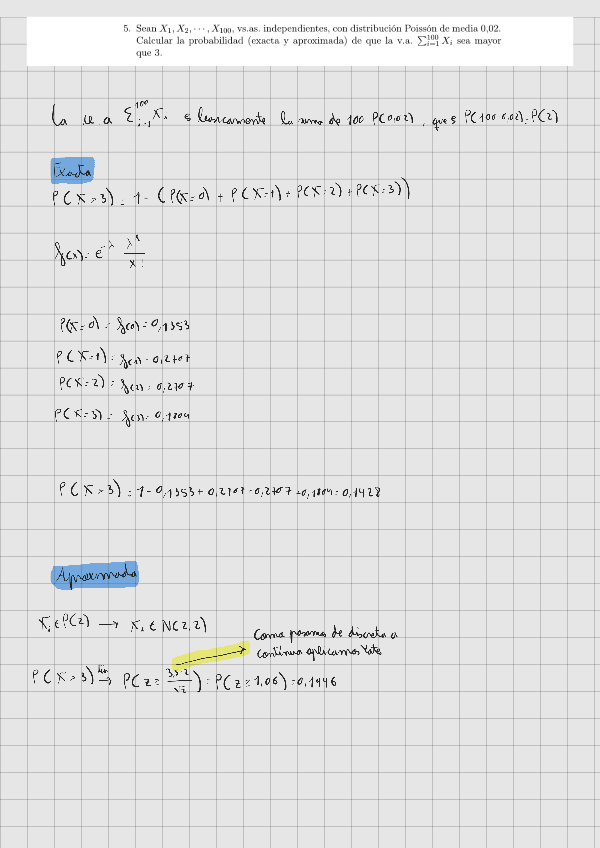 5. Sean X₁, X₂, ⋯ , X₁₀₀, vs.as. independientes, con distribución Poissón de media 0,02.
Calcular la probabilidad (exacta y aproximada) de que la v.a. ∑ᵢ₌₁¹⁰⁰ Xᵢ sea mayor
que 3.
La v a Σᵢ₌₁¹⁰⁰ Xᵢ es basicamente la suma de 100 P(0,02), que es P(100·0,02)=P(2)
Exacta
P(X>3) = 1 - (P(X=0) + P(X=1) + P(X=2) + P(X=3))
f(x) = e^-λ λ^x / x!
P(X=0) = f(0) = 0,1353
P(X=1) = f(1) = 0,2707
P(X=2) = f(2) = 0,2707
P(X=3) = f(3) = 0,1804
P(X>3) = 1 - 0,1353 + 0,2707 + 0,2707 + 0,1804 = 0,1428
Aproximada
Xᵢ ∈ P(2) → Xᵢ ∈ N(2,2)
Como pasamos de discreta a
continua aplicamos Yate
P(X>3) → P(Z ≥ 3,5-2 / √2) = P(Z ≥ 1,06) = 0,1446